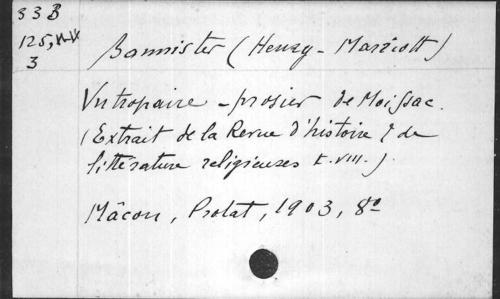 33 B
125,
3
Bannister (Henry-Marriott)
Un tropaire-prosier de Moissac.
(Extrait de la Revue d'histoire & de
littérature religieuses t. VIII.).
Mâcon, Protat, 1903, 8º